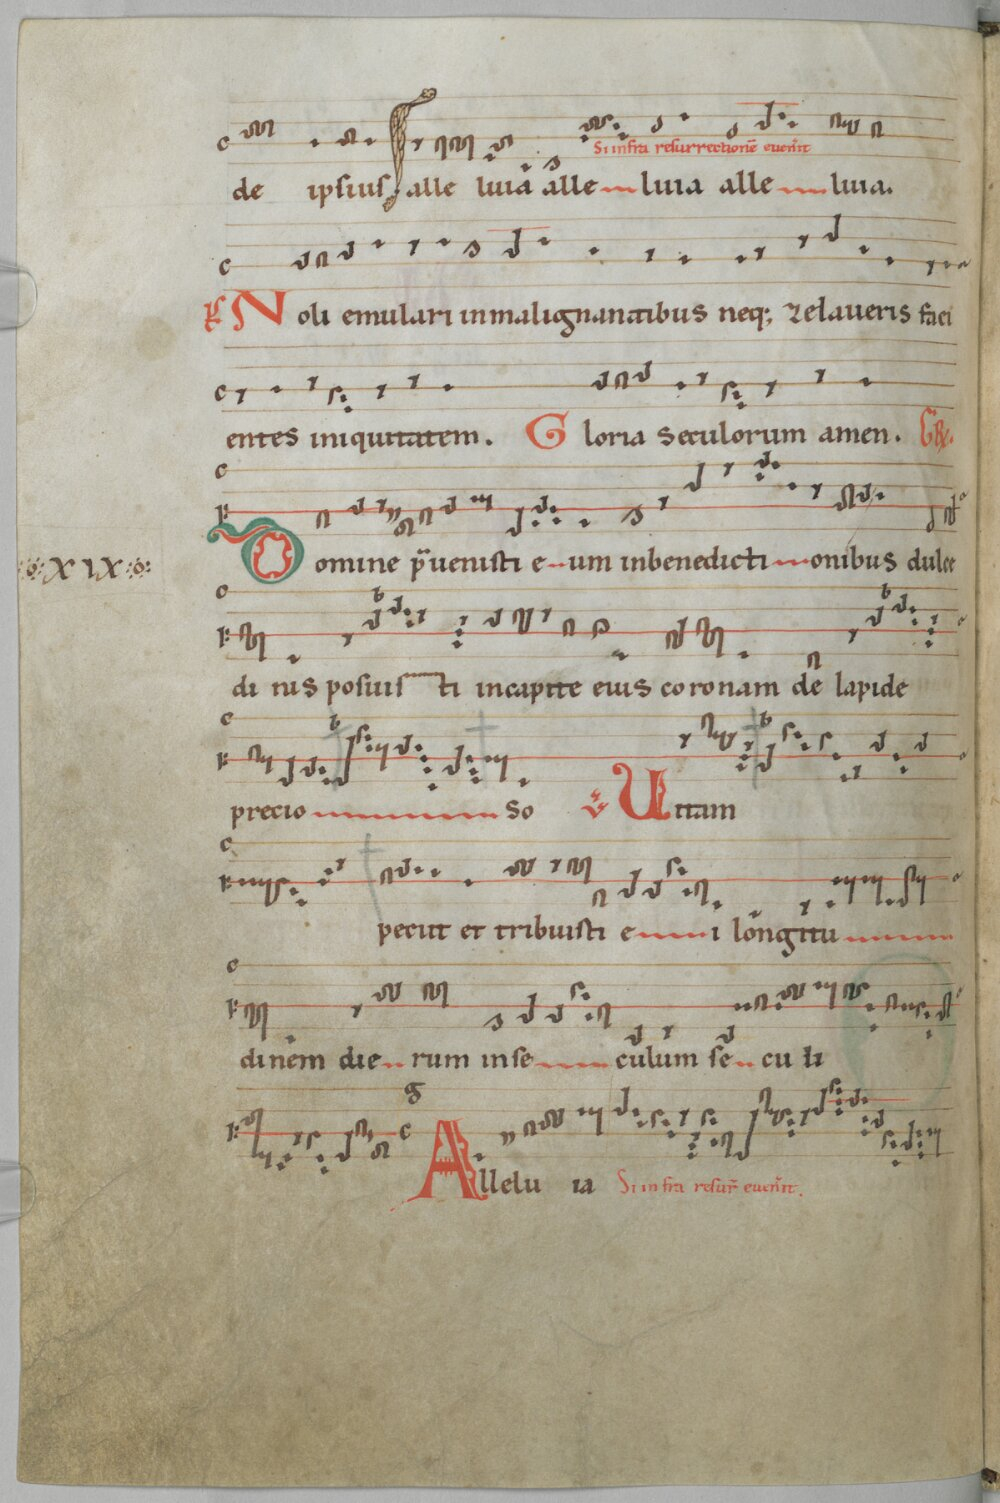 Si infra resurrectionē euen̄it
de ipsius alle luia alle luia alle luia.
Noli emulari in malignantibus neq; zelaueris faci
entes iniquitatem. Gloria seculorum amen. GR.
Domine p̄uenisti e um in benedicti onibus dulce
XIX
di nis posuis ti in capite eius coronam de lapide
precio so V Uitam
peciit et tribuisti e i longitu
dinem die rum in se culum se cu li
Allelu ia Si infra resur̄ euen̄it.